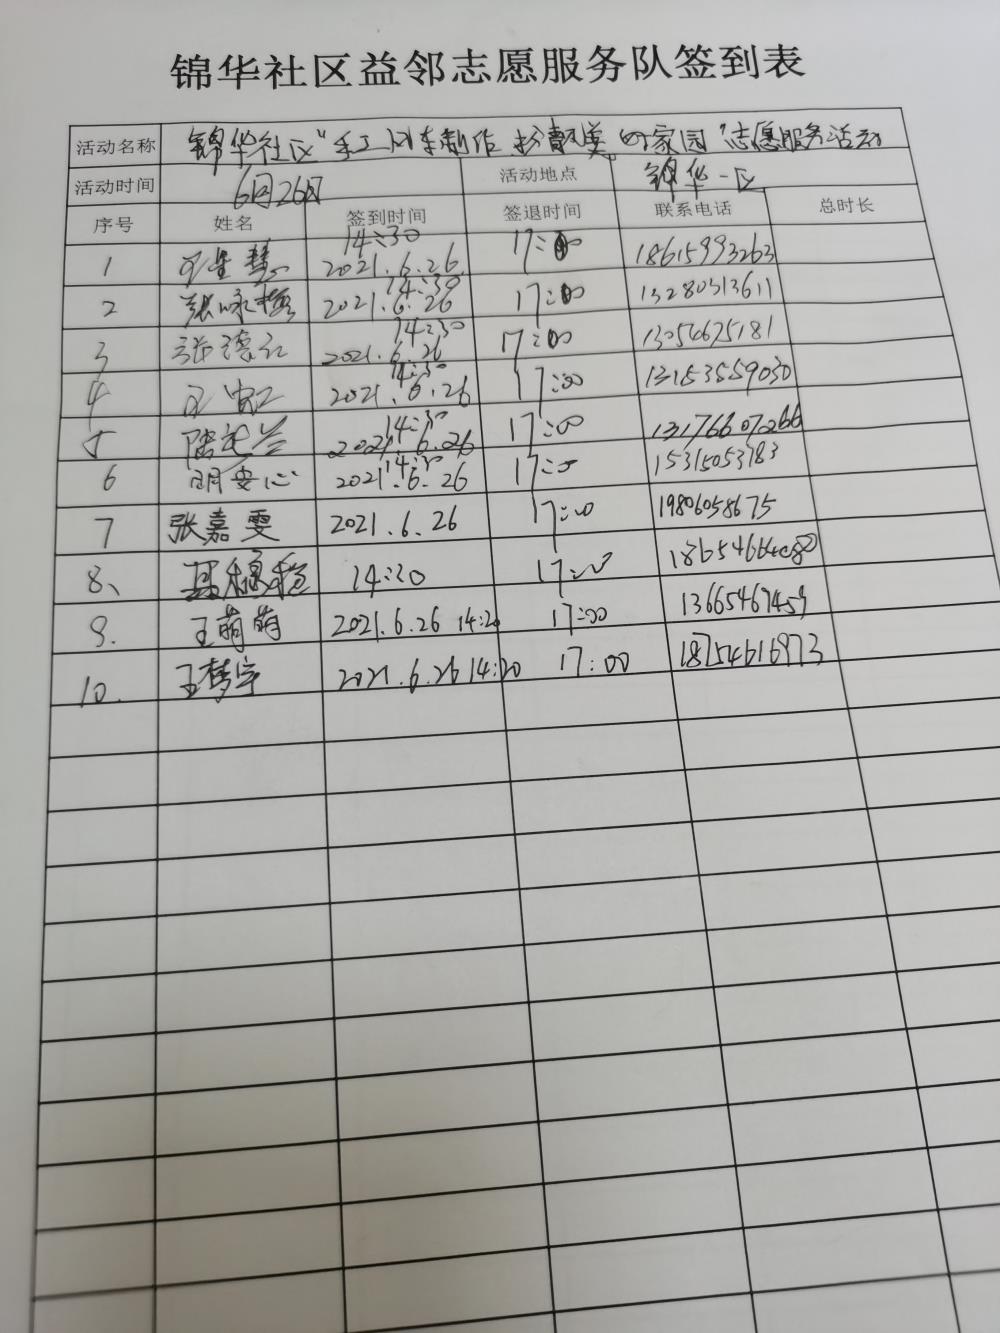 锦华社区益邻志愿服务队签到表
活动名称 锦华社区"手工风车制作 扮靓美丽家园"志愿服务活动
活动时间 6月26日 活动地点 锦华一区
序号 姓名 签到时间 签退时间 联系电话 总时长
1 慧 14:30 2021.6.26 17:00 18615993263
2 张咏梅 14:30 2021.6.26 17:00 13280313611
3 张德 14:30 2021.6.26 17:00 13054675181
4 14:30 2021.6.26 17:00 13153559030
5 陆 兰 14:30 2021.6.26 17:00 13176607266
6 明安心 14:30 2021.6.26 17:00 15315053783
7 张嘉雯 2021.6.26 17:00 19806058675
8、 14:20 17:00
9. 王萌萌 2021.6.26 14:20 17:00 13665467459
10. 王梦宇 2021.6.26 14:20 17:00 18754616973